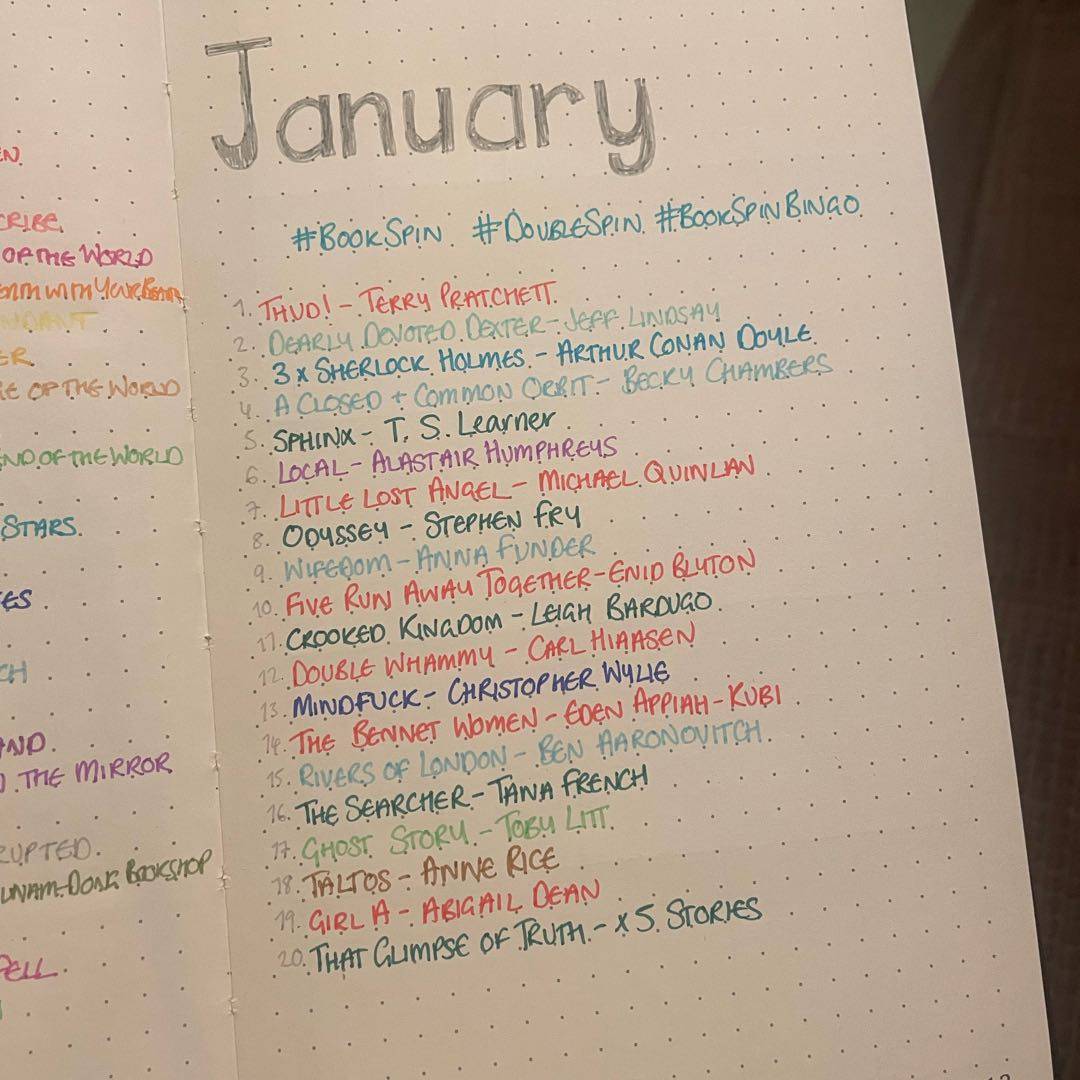 EN
CRIBE
OF THE WORLD
WITH YOUR
ER
OF THE WORLD
END OF THE WORLD
STARS.
ES
CH
AND.
THE MIRROR
RUPTED.
UNAM-DONG BOOKSHOP
PELL.
January
#BOOKSPIN. #DOUBLESPIN. #BOOKSPINBINGO
1. THUD! - TERRY PRATCHETT.
2. DEARLY DEVOTED DEXTER - JEFF LINDSAY
3. 3 x SHERLOCK HOLMES - ARTHUR CONAN DOYLE.
4. A CLOSED + COMMON ORBIT - BECKY CHAMBERS
5. SPHINX - T. S. Learner
6. LOCAL - ALASTAIR HUMPHREYS
7. LITTLE LOST ANGEL - MICHAEL QUINLAN
8. ODYSSEY - STEPHEN FRY
9. WIFEDOM - ANNA FUNDER
10. FIVE RUN AWAY TOGETHER - ENID BLYTON
11. CROOKED KINGDOM - LEIGH BARDUGO
12. DOUBLE WHAMMY - CARL HIAASEN
13. MINDFUCK - CHRISTOPHER WYLIE
14. THE BENNET WOMEN - EDEN APPIAH-KUBI
15. RIVERS OF LONDON - BEN AARONOVITCH.
16. THE SEARCHER - TANA FRENCH
17. GHOST STORY - TOBY LITT.
18. TALTOS - ANNE RICE
19. GIRL A - ABIGAIL DEAN
20. THAT GLIMPSE OF TRUTH. - x 5 STORIES